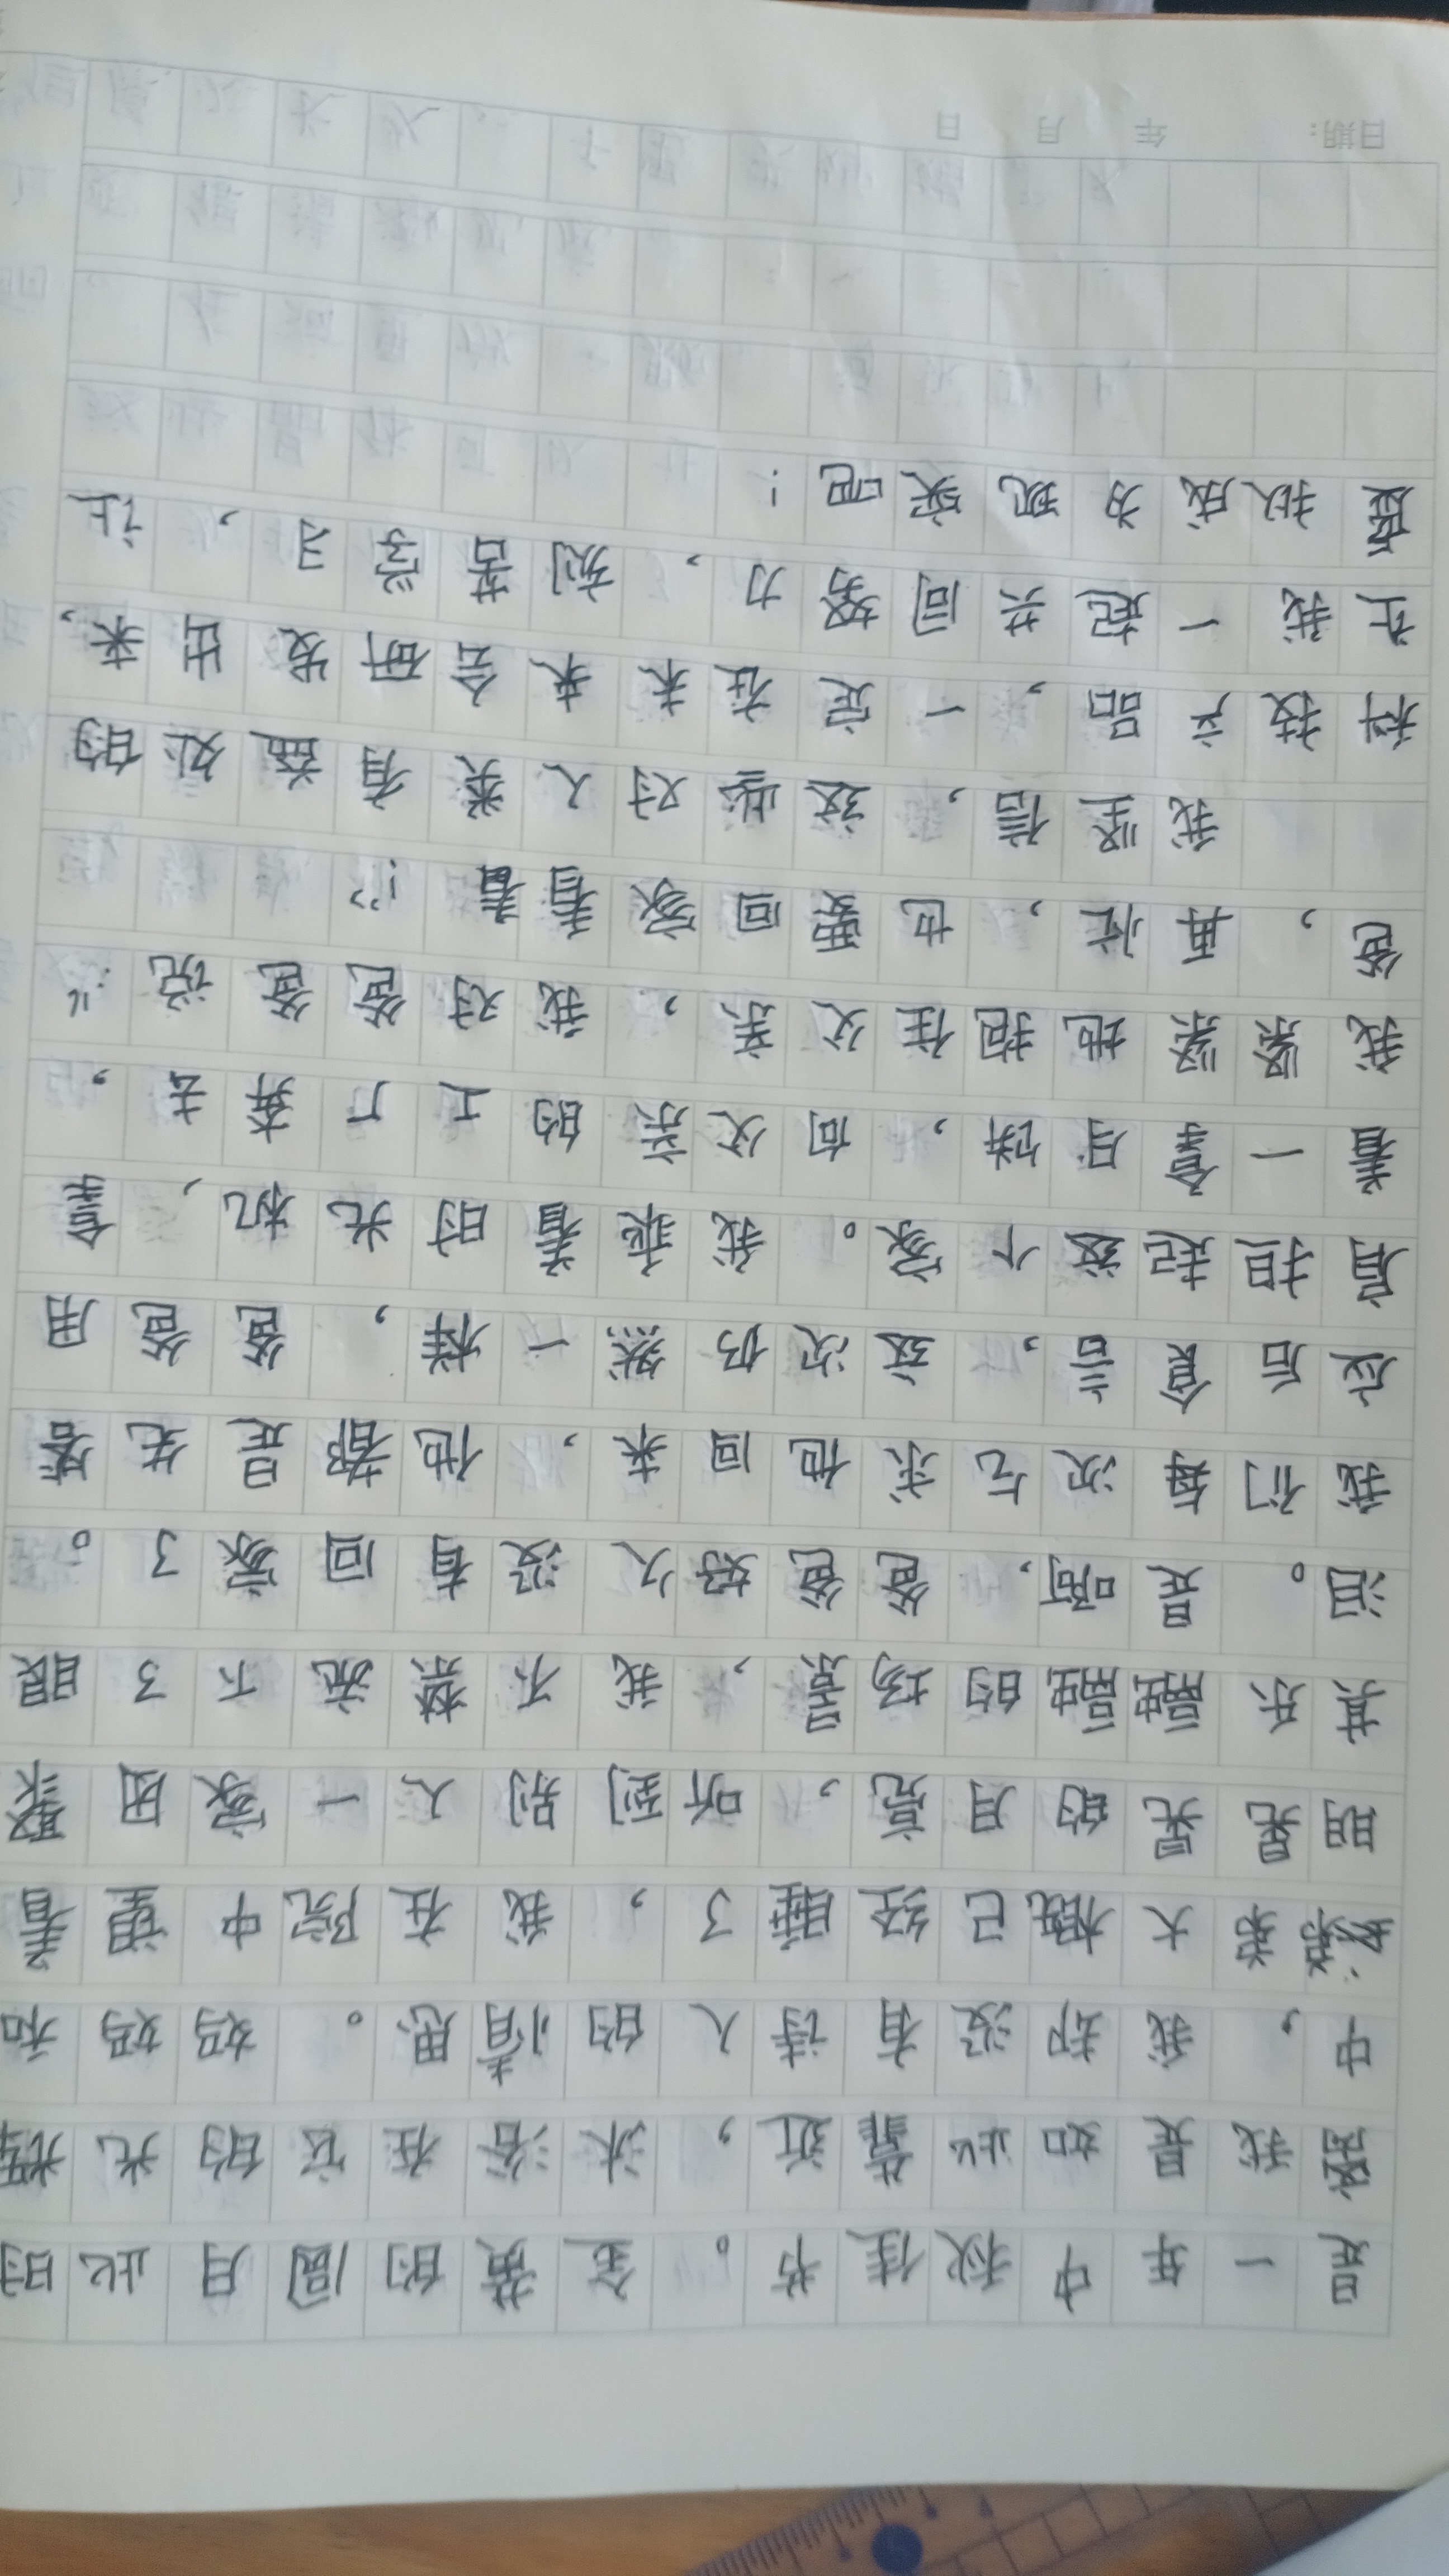 日期: 年 月 日
是一年中秋佳节。金黄的圆月此时
离我是如此靠近,沐浴在它的光辉
中,我却没有诗人的情思。妈妈和
大概已经睡了,我在院中望着
明晃晃的月亮,听到别人一家团聚
其乐融融的场景,我不禁流下了眼
泪。是啊,爸爸好久没有回家了。
我们每次乞求他回来,他都是先答
应后食言,这次仍然一样,爸爸用
肩扛起这个家。我乘着时光机,拿
着一盒月饼,向父亲的工厂奔去,
我紧紧地抱住父亲,我对爸爸说:“
爸,再忙,也要回家看看!”
我坚信,这些对人类有益处的
科技产品,一定在未来会研发出来,
让我一起共同努力,刻苦学习,让
虚拟成为现实吧!